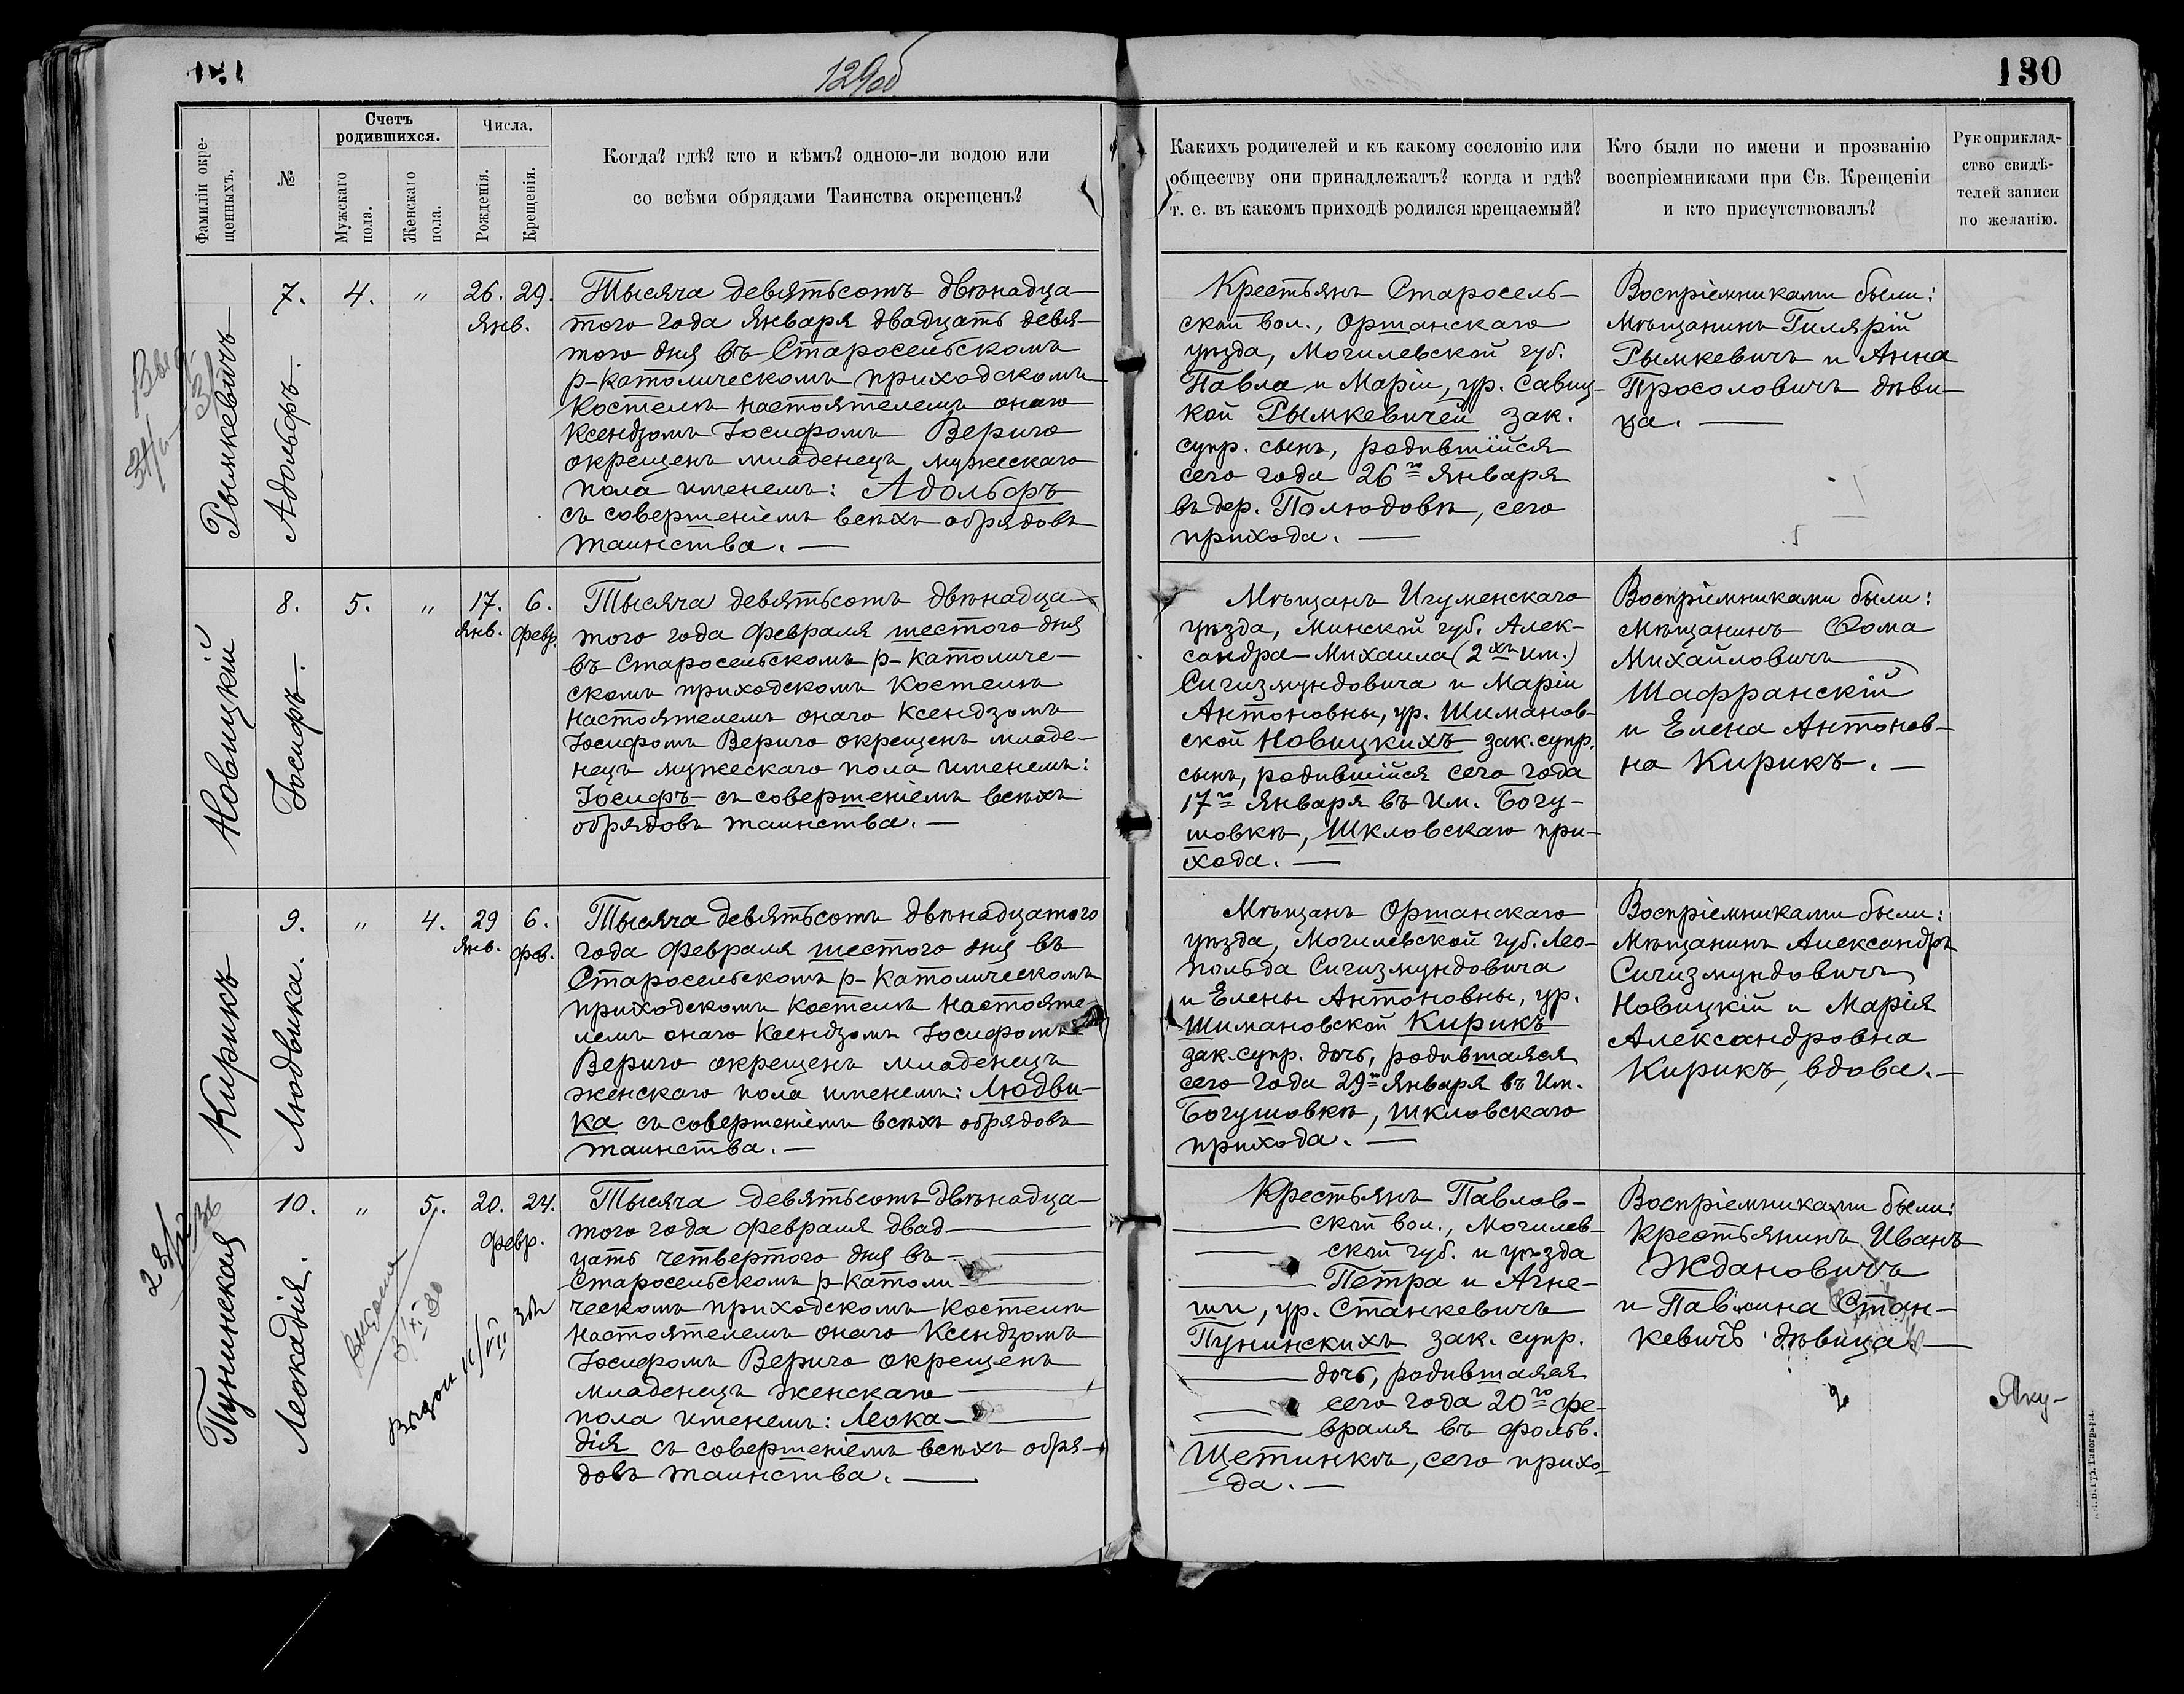 129об
130
Фамиліи окре-
щенныхъ.
№
Счетъ
родившихся.
Мужскаго
пола.
Женскаго
пола.
Числа.
Рожденія.
Крещенія.
Когда? гдѣ? кто и кѣмъ? одною-ли водою или
со всѣми обрядами Таинства окрещенъ?
Какихъ родителей и къ какому сословію или
обществу они принадлежатъ? когда и гдѣ?
т. е. въ какомъ приходѣ родился крещаемый?
Кто были по имени и прозванію
воспріемниками при Св. Крещеніи
и кто присутствовалъ?
Рукоприклад-
ство свидѣ-
телей записи
по желанію.
Рымкевичъ
7.
Адольфъ.
4.
"
26. 29.
Янв.
Тысяча девятьсотъ двѣнадца-
того года Января двадцать девя-
того дня въ Старосельскомъ
р-католическомъ приходскомъ
Костелѣ настоятелемъ онаго
Ксендзомъ Іосифомъ Верыго
окрещенъ младенецъ мужескаго
пола именемъ: Адольфъ
съ совершеніемъ всѣхъ обрядовъ
таинства. —
Крестьянъ Старосель-
ской вол., Оршанскаго
уѣзда, Могилевской губ.
Павла и Маріи, ур. Савиц-
кой Рымкевичей зак.
супр. сынъ, родившійся
сего года 26го Января
въ дер. Полюдовѣ, сего
прихода. —
Воспріемниками были:
Мѣщанинъ Гилярій
Рымкевичъ и Анна
Просоловичъ дѣви-
ца. —
Новицкій
8.
Іосифъ.
5.
"
17. 6.
Янв. Февр.
Тысяча девятьсотъ двѣнадца-
того года Февраля шестого дня
въ Старосельскомъ р-католиче-
скомъ приходскомъ Костелѣ
настоятелемъ онаго Ксендзомъ
Іосифомъ Верыго окрещенъ младе-
нецъ мужескаго пола именемъ:
Іосифъ съ совершеніемъ всѣхъ
обрядовъ таинства. —
Мѣщанъ Игуменскаго
уѣзда, Минской губ. Алек-
сандра-Михаила (2хъ им.)
Сигизмундовича и Маріи
Антоновны, ур. Шиманов-
ской Новицкихъ зак. супр.
сынъ, родившійся сего года
17го Января въ им. Богу-
шовкѣ, Шкловскаго при-
хода. —
Воспріемниками были:
Мѣщанинъ Ѳома
Михайловичъ
Шафранскій
и Елена Антонов-
на Кирикъ. —
Кирикъ
9.
Людвика.
"
4.
29 6.
Янв. Фев.
Тысяча девятьсотъ двѣнадцатого
года Февраля шестого дня въ
Старосельскомъ р-католическомъ
приходскомъ Костелѣ настояте-
лемъ онаго Ксендзомъ Іосифомъ
Верыго окрещенъ младенецъ
женскаго пола именемъ: Людви-
ка съ совершеніемъ всѣхъ обрядовъ
таинства. —
Мѣщанъ Оршанскаго
уѣзда, Могилевской губ. Лео-
польда Сигизмундовича
и Елены Антоновны, ур.
Шимановской Кирикъ
зак. супр. дочь, родившаяся
сего года 29го Января въ Им.
Богушовкѣ, Шкловскаго
прихода. —
Воспріемниками были:
Мѣщанинъ Александръ
Сигизмундовичъ
Новицкій и Марія
Александровна
Кирикъ, вдова. —
Пунинская
10.
Леокадія.
"
5.
20. 24.
Февр.
Тысяча девятьсотъ двѣнадца-
того года Февраля двад-
цать четвертого дня въ
Старосельскомъ р-католи-
ческомъ приходскомъ Костелѣ
настоятелемъ онаго Ксендзомъ
Іосифомъ Верыго окрещенъ
младенецъ женскаго
пола именемъ: Леока-
дія съ совершеніемъ всѣхъ обря-
довъ таинства. —
Крестьянъ Павлов-
ской вол., Могилев-
ской губ. и уѣзда
Петра и Агне-
шки, ур. Станкевичъ
Пунинскихъ зак. супр.
дочь, родившаяся
сего года 20го Фе-
враля въ фольв.
Щетинкѣ, сего прихо-
да. —
Воспріемниками были:
Крестьянинъ Иванъ
Ждановичъ
и Павлина Стан-
кевичъ дѣвица
выдана
Выдан 11/VII
Яку-